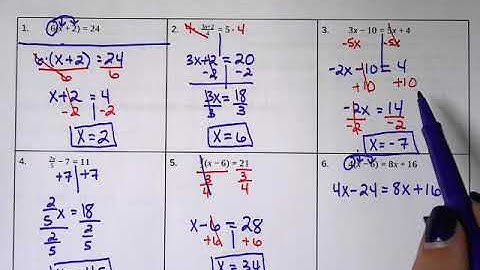 1. 6(x + 2) = 24
6·(x+2) = 24
6 6
x+2 = 4
-2 -2
x = 2
2. 4· 3x+2/4 = 5 · 4
3x+2 = 20
-2 -2
3x = 18
3 3
x = 6
3. 3x − 10 = 5x + 4
-5x -5x
-2x -10 = 4
+10 +10
-2x = 14
-2 -2
x = -7
4. 2x/5 − 7 = 11
+7 +7
2/5 x = 18
2/5 2/5
5. (x − 6) = 21
3/4 3/4
x-6 = 28
+6 +6
x = 34
6. 4(x − 6) = 8x + 16
4x-24 = 8x+16